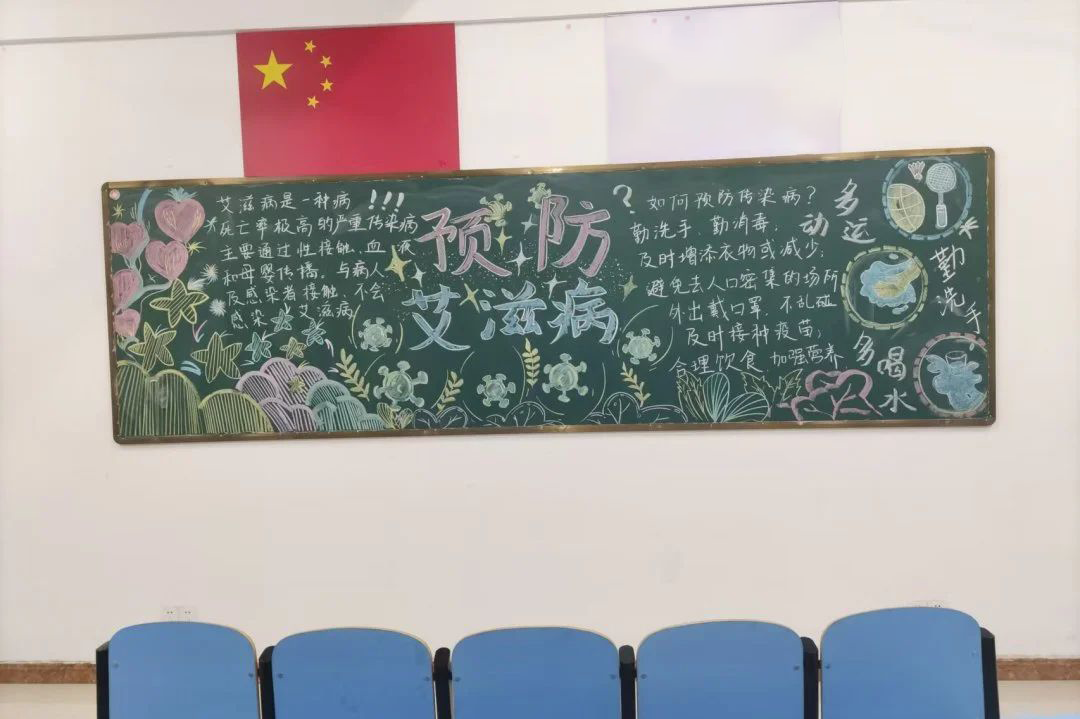 艾滋病是一种病!!!
死亡率极高的严重传染病
主要通过性接触、血液
和母婴传播,与病人
及感染者接触,不会
感染艾滋病
预防
艾滋病
?如何预防传染病?
勤洗手,勤消毒;
及时增添衣物或减少;
避免去人口密集的场所
外出戴口罩,不乱碰
及时接种疫苗;
合理饮食,加强营养
多运动
勤洗手
多喝水